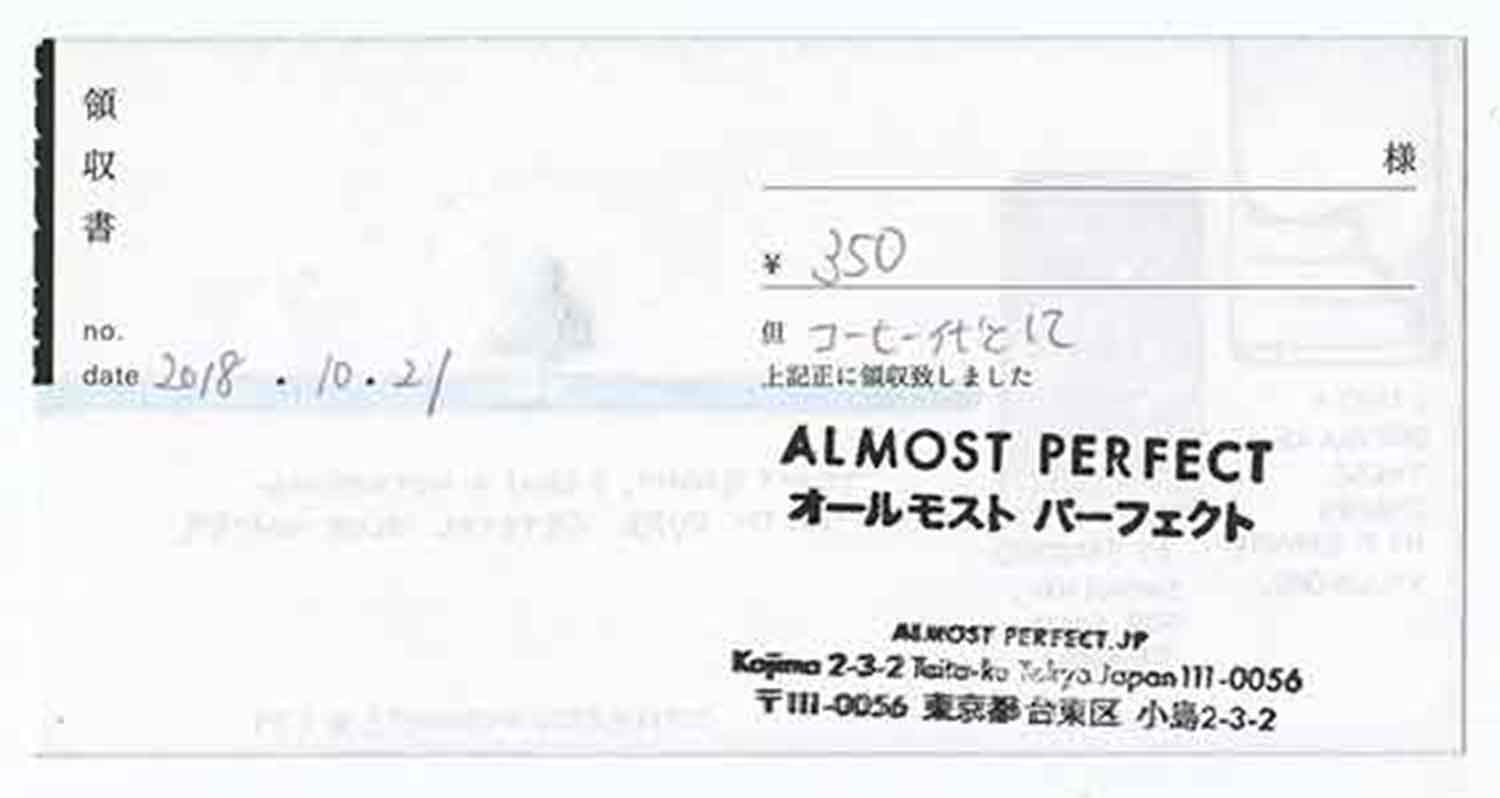 領収書
no.
date 2018 . 10 . 21
様
¥ 350
但 コーヒー代として
上記正に領収致しました
ALMOST PERFECT
オールモスト パーフェクト
ALMOST PERFECT.JP
Kojima 2-3-2 Taito-ku Tokyo Japan 111-0056
〒111-0056 東京都台東区 小島2-3-2